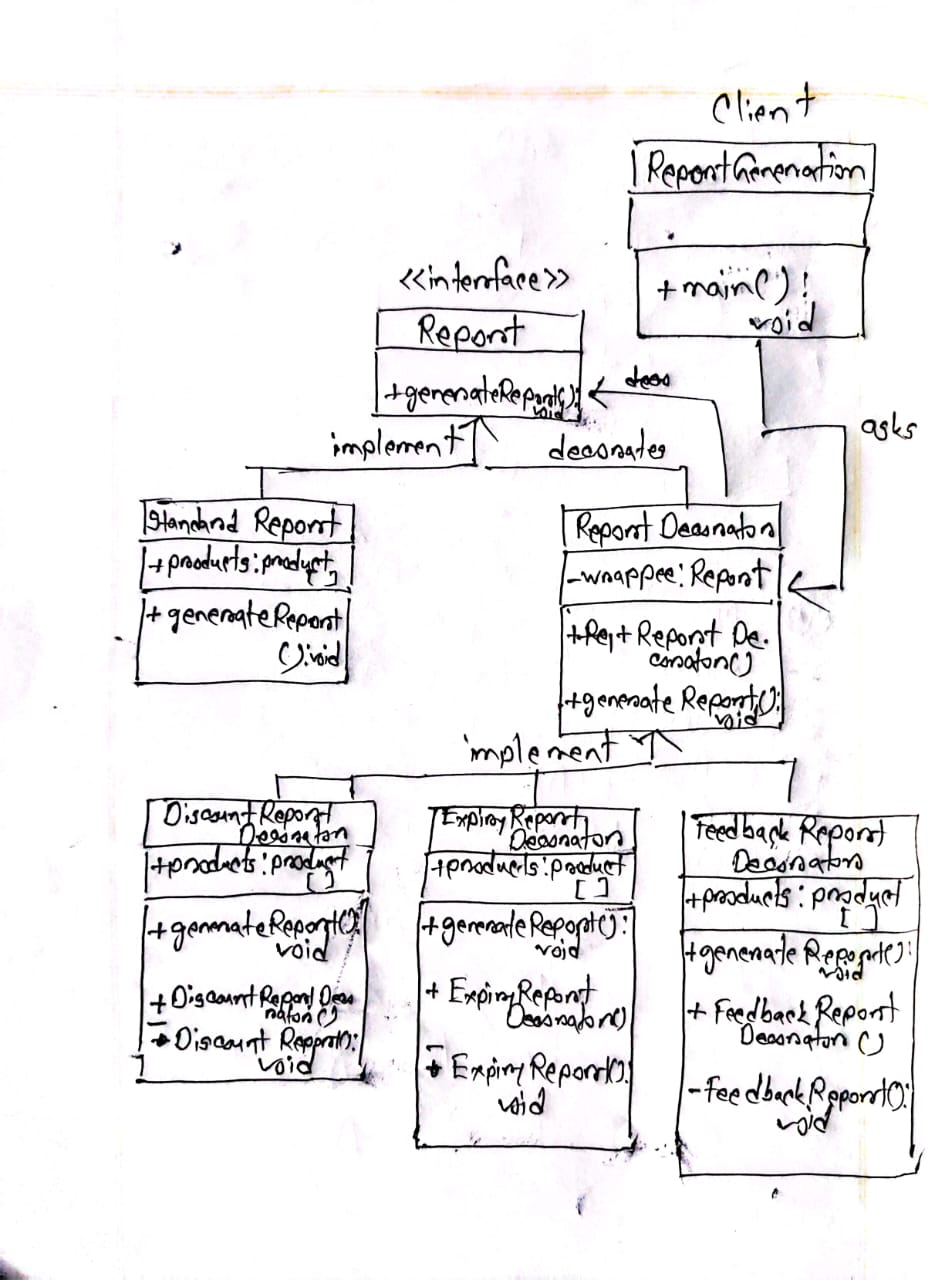 Client
Report Generation
+main() :
void
<<interface>>
Report
+generateReport():
void
deco
asks
implement
decorates
Standard Report
+products:product
[]
+ generateReport
():void
Report Decorator
-wrappee:Report
+ Report De.
corator()
+generate Report():
void
implement
Discount Report
Decorator
+products:product
[]
+generateReport():
void
+ Discount Report Deco
rator()
- Discount Report():
void
Expiry Report
Decorator
+products:product
[]
+generateReport():
void
+ Expiry Report
Decorator()
- Expiry Report():
void
Feedback Report
Decorator
+products: product
[]
+generate Report():
void
+ Feedback Report
Decorator ()
-Feedback Report():
void